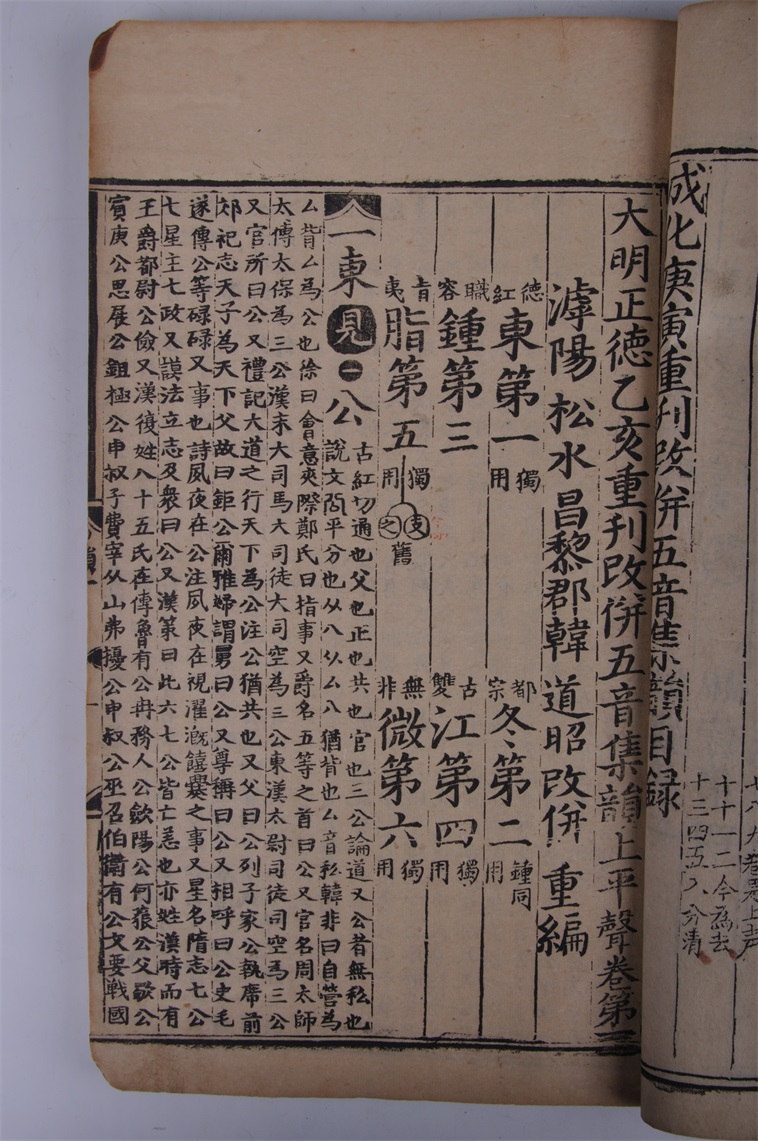 成化庚寅重刊改併五音集韻目録
大明正德乙亥重刊改併五音集韻上平聲卷第一
滹陽 松水 昌黎郡 韓 道昭 改併 重編
德紅東第一獨用 都宗冬第二鍾同用
職容鍾第三 古雙江第四獨用
旨夷脂第五獨用 支之舊 無非微第六獨用
一東 見 一 公 古紅切通也父也正也共也官也三公論道又公者無私也
說文公平分也从八从厶八猶背也厶音私韓非曰自營為
厶背厶為公也徐曰會意夾漈鄭氏曰指事又爵名五等之首曰公又官名周太師
太傅太保為三公漢末大司馬大司徒大司空為三公東漢太尉司徒司空為三公
又官所曰公又禮記大道之行天下為公注公猶共也又父曰公列子家公執席前
郊祀志天子為天下父故曰鉅公爾雅婦謂舅曰公又尊稱曰公又相呼曰公史毛
遂傳公等碌碌又事也詩夙夜在公注夙夜在視濯漑饎爨之事又星名隋志七公
七星主七政又謚法立志及衆曰公又漢策曰此六七公皆亡恙也亦姓漢時而有
王爵都尉公儉又漢復姓八十五氏左傳魯有公冉務人公歛陽公何藐公父歜公
賓庚公思展公鉏極公申叔子費宰公山弗擾公申叔公巫召伯衛有公文要戰國